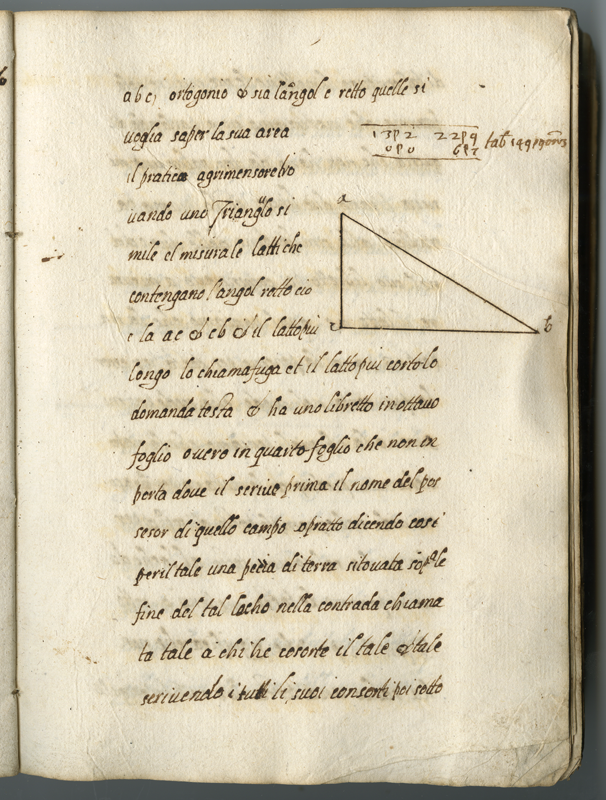 abc, ortogonio & sia l'angol c retto quelle si
uoglia saper la sua area
il pratico agrimensore tro
uando uno Triangolo si
mile el misura le latti che
contengano l'angol retto cio
e la ac & cb & il latto piu
longo lo chiama fuga et il latto piu corto lo
domanda testa & ha uno libretto in ottauo
foglio ouero in quarto foglio che non en
porta doue il scriue prima il nome del pos
sesor di quello campo o pratto dicendo cosi
per il tale una pecia di terra sitouata sop.ª le
fine del tal locho nella contrada chiama
ta tale a chi he cosorte il tale & tale
scriuendo i tutti li suoi consorti poi sotto
1 3 p 2 2 2 p 9
0 p 0 6 p 7
a
c
b